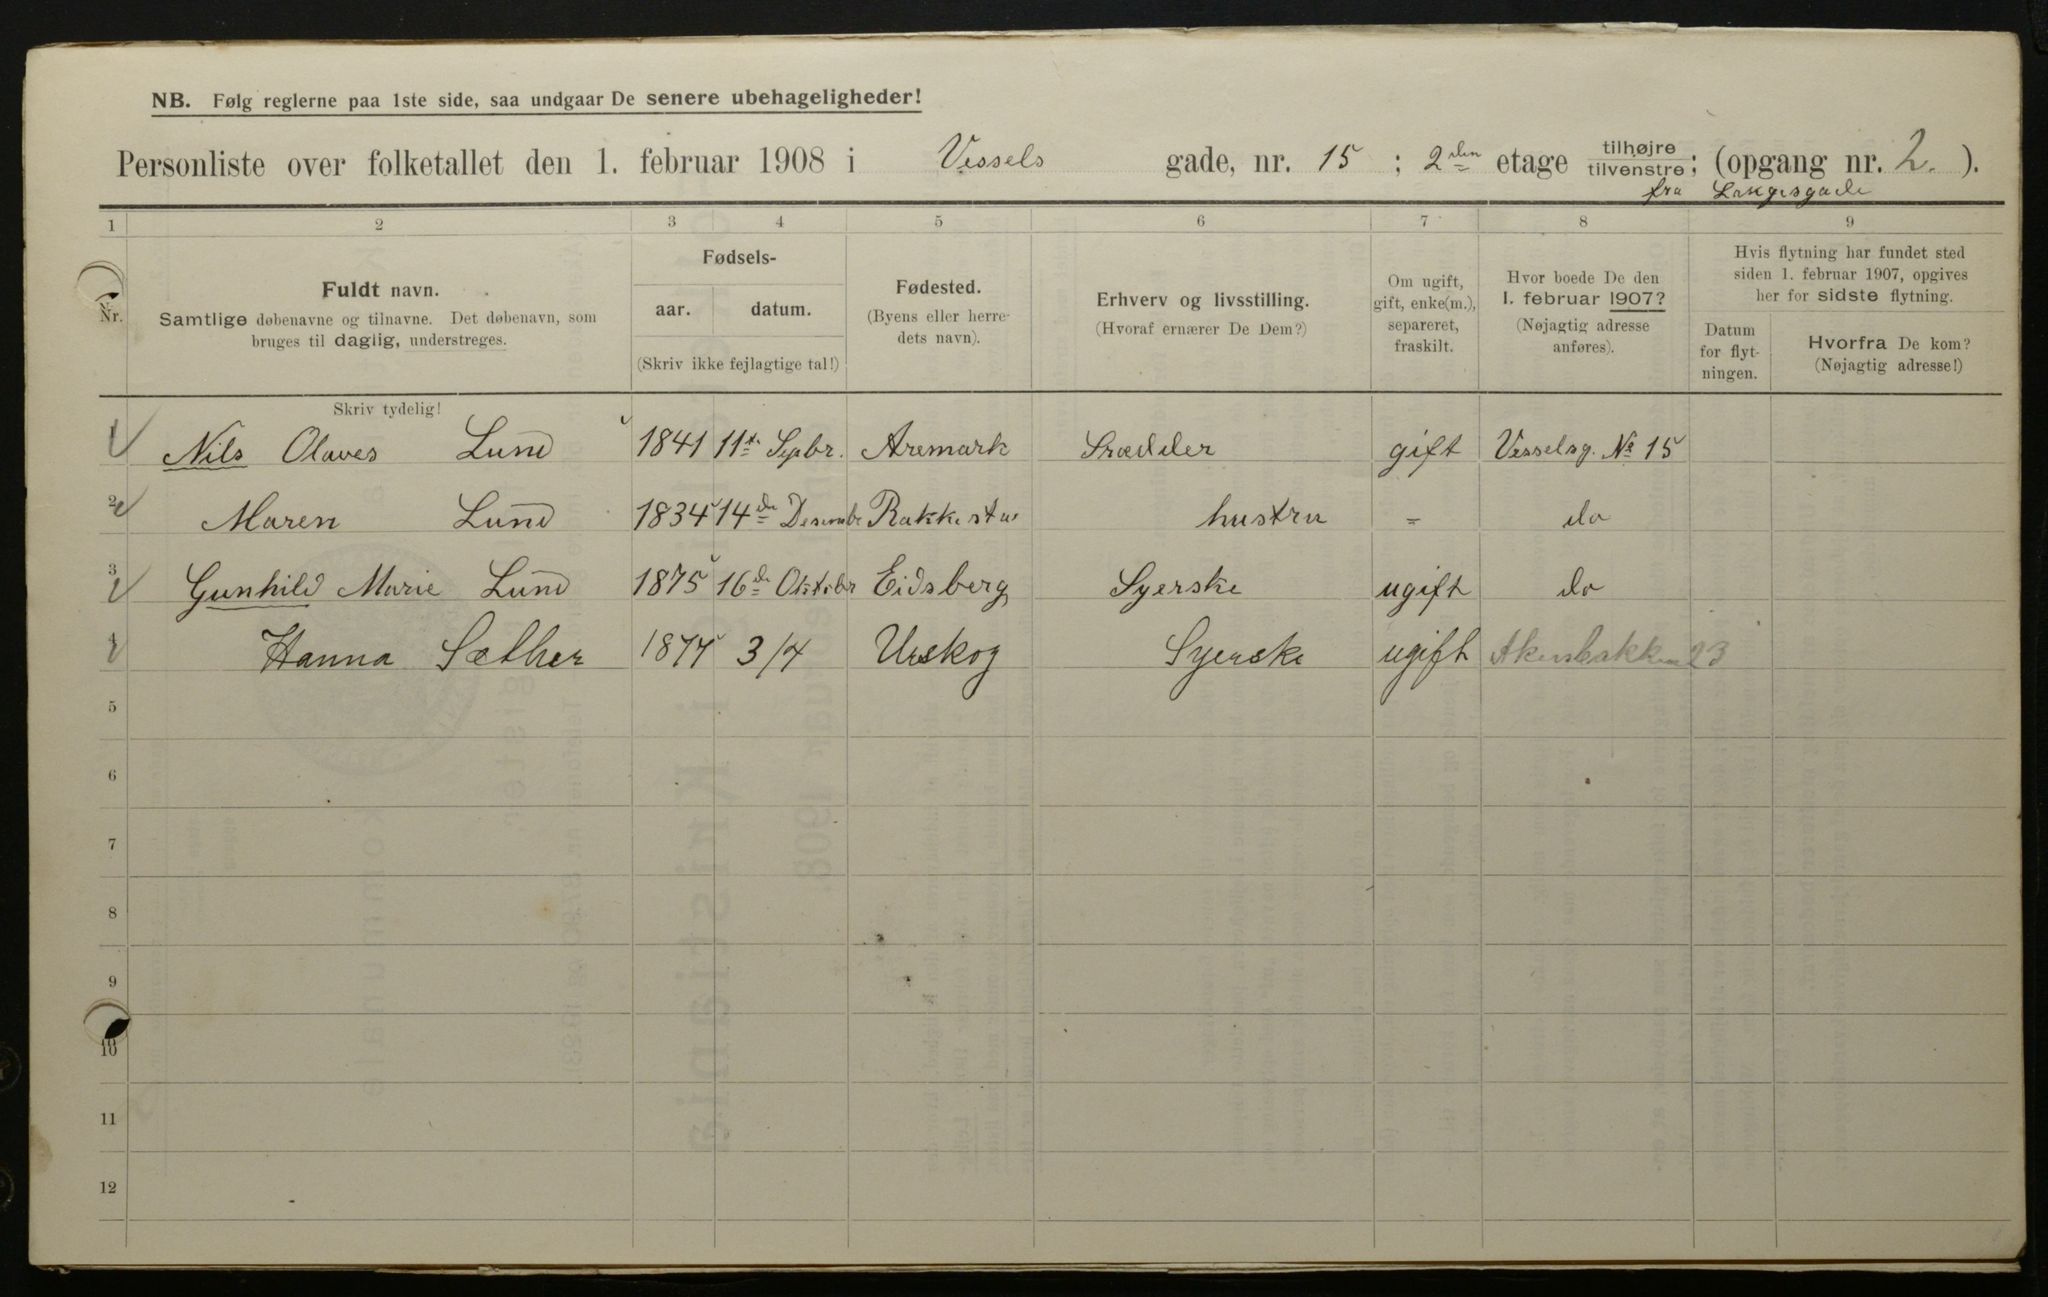 NB. Følg reglerne paa 1ste side, saa undgaar De senere ubehageligheder!
Personliste over folketallet den 1. februar 1908 i Vessels gade, nr. 15 ; 2den etage tilhøjre tilvenstre; (opgang nr. 2. ).
fra Langesgade
1 2 3 4 5 6 7 8 9
Nr. Fuldt navn. Samtlige døbenavne og tilnavne. Det døbenavn, som bruges til daglig, understreges.
Fødsels- aar. datum. (Skriv ikke fejlagtige tal!)
Fødested. (Byens eller herredets navn).
Erhverv og livsstilling. (Hvoraf ernærer De Dem?)
Om ugift, gift, enke(m.), separeret, fraskilt.
Hvor boede De den 1. februar 1907? (Nøjagtig adresse anføres).
Hvis flytning har fundet sted siden 1. februar 1907, opgives her for sidste flytning.
Datum for flytningen. Hvorfra De kom? (Nøjagtig adresse!)
Skriv tydelig!
1 Nils Olaves Lund 1841 11te Sepbr. Aremark Srædder gift Vesselsg. No 15
2 Maren Lund 1834 14de Desembr Rakkestad hustru = do
3 Gunhild Marie Lund 1875 16de Oktobr Eidsberg Syerske ugift do
4 Hanna Sæther 1877 3/4 Urskog Syerske ugift Akersbakken 23
5
6
7
8
9
10
11
12